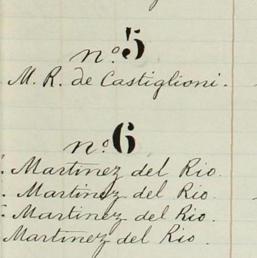 no. 5
M. R. de Castiglioni.
no. 6
Martinez del Rio.
Martinez del Rio.
Martinez del Rio.
Martinez del Rio.